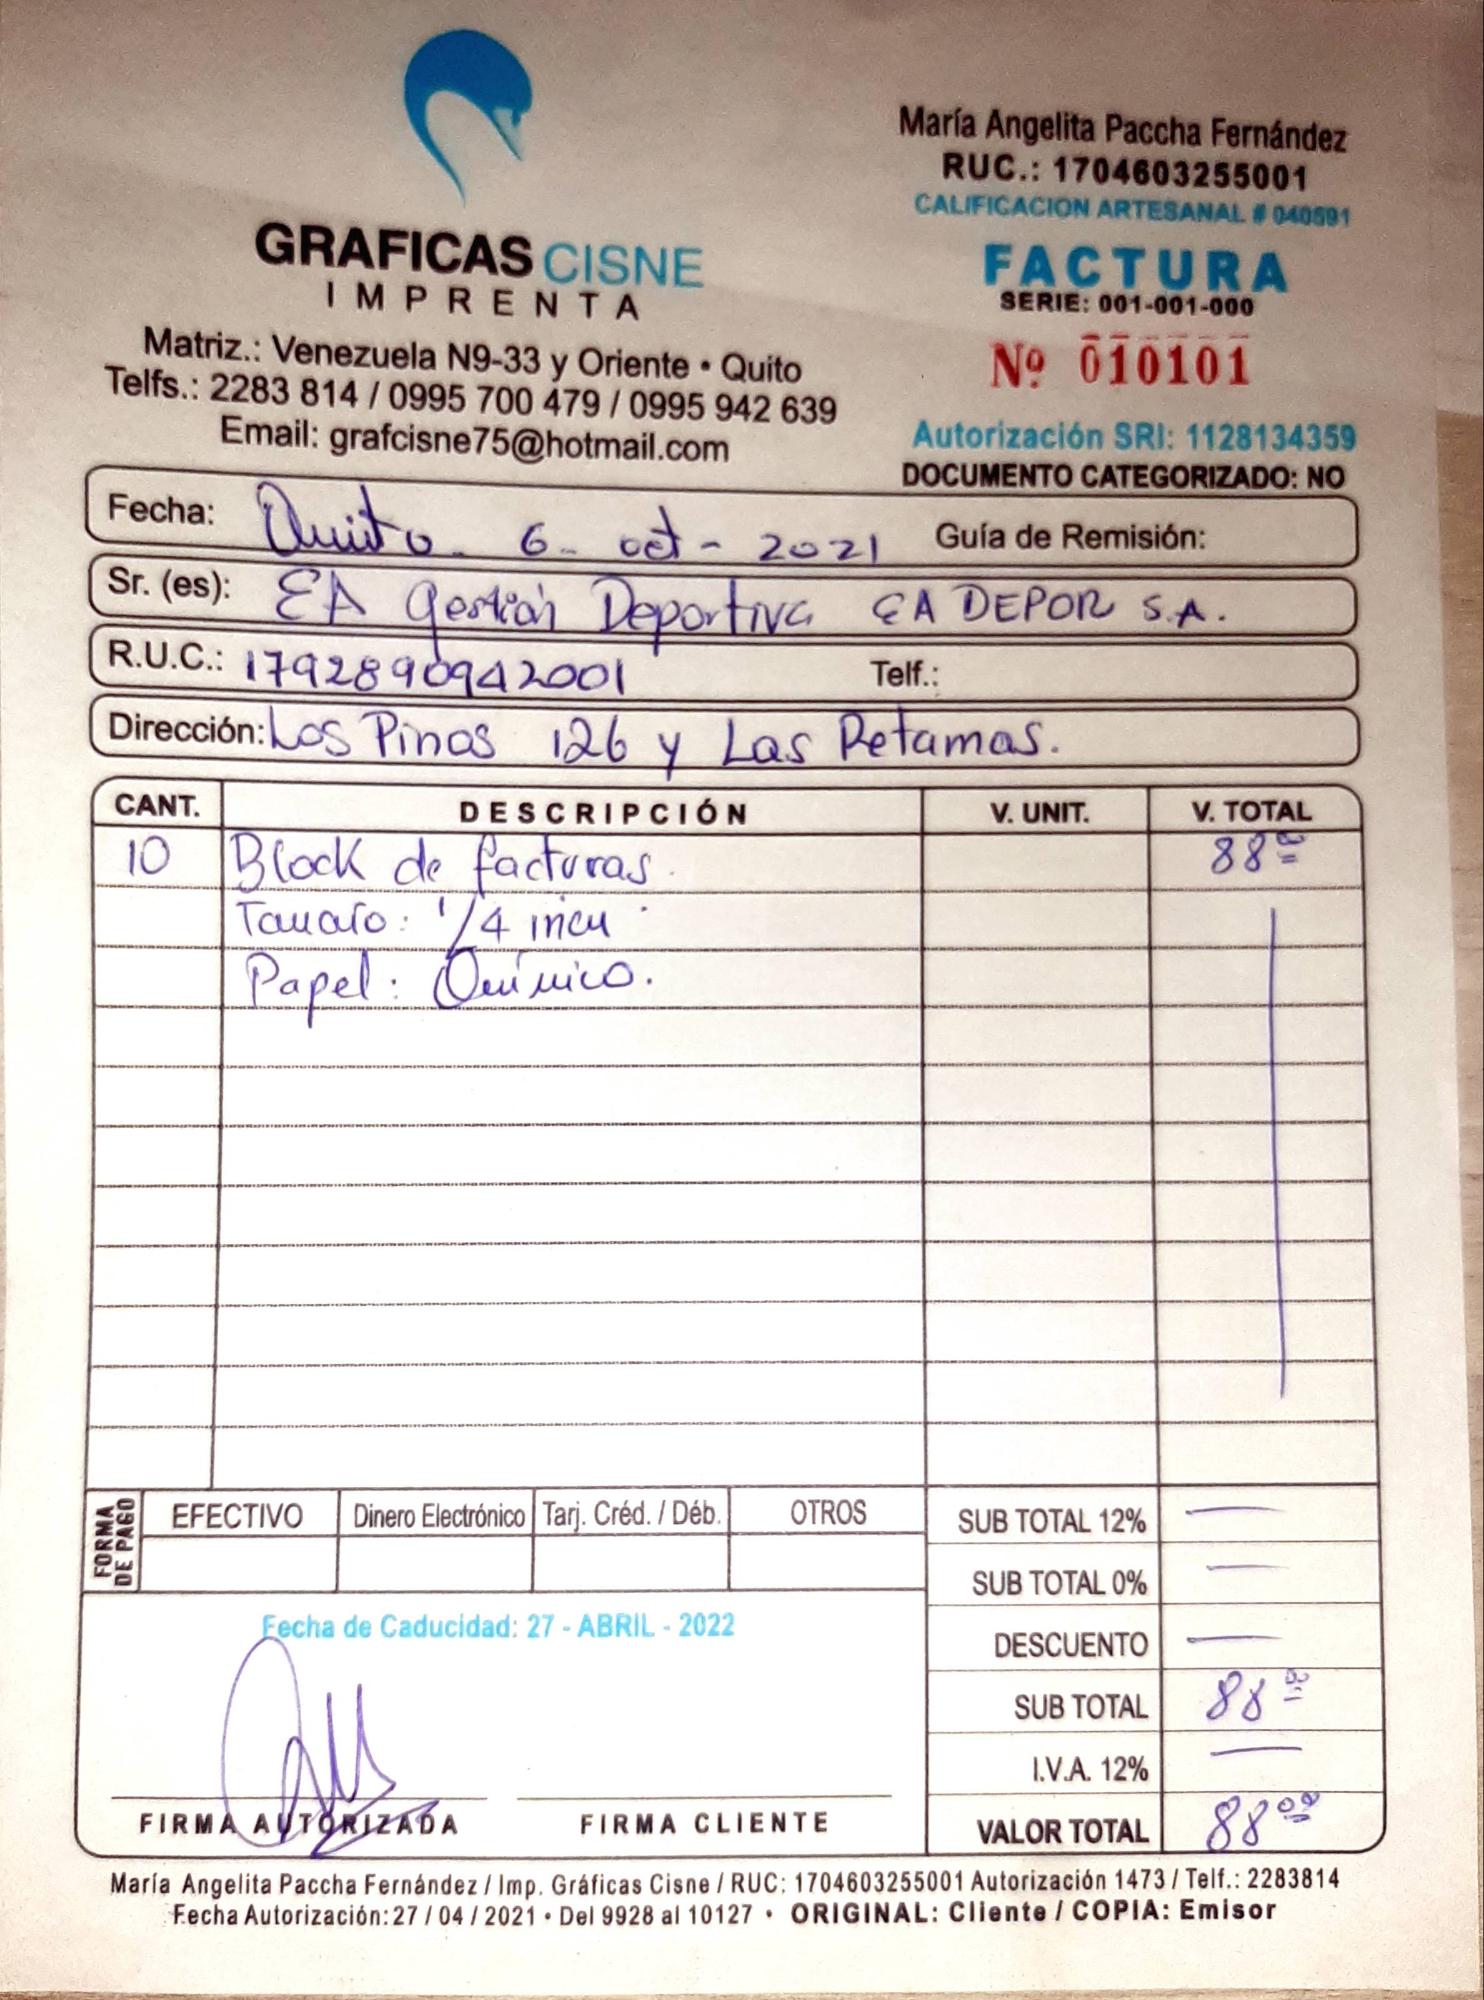 GRAFICAS CISNE
IMPRENTA
Matriz.: Venezuela N9-33 y Oriente • Quito
Telfs.: 2283 814 / 0995 700 479 / 0995 942 639
Email: grafcisne75@hotmail.com
María Angelita Paccha Fernández
RUC.: 1704603255001
CALIFICACION ARTESANAL # 040591
FACTURA
SERIE: 001-001-000
Nº 010101
Autorización SRI: 1128134359
DOCUMENTO CATEGORIZADO: NO
Fecha: Quito - 6 - oct - 2021 Guía de Remisión:
Sr. (es): EA Gestión Deportiva EA DEPOR S.A.
R.U.C.: 1792890942001 Telf.:
Dirección: Los Pinos 126 y Las Retamas.
CANT. DESCRIPCIÓN V. UNIT. V. TOTAL
10 Block de facturas 88 00
Tamaño: 1/4 inen
Papel: Químico.
FORMA DE PAGO
EFECTIVO Dinero Electrónico Tarj. Créd. / Déb. OTROS
SUB TOTAL 12% —
SUB TOTAL 0% —
DESCUENTO —
SUB TOTAL 88 00
I.V.A. 12% —
VALOR TOTAL 88 00
Fecha de Caducidad: 27 - ABRIL - 2022
FIRMA AUTORIZADA FIRMA CLIENTE
María Angelita Paccha Fernández / Imp. Gráficas Cisne / RUC: 1704603255001 Autorización 1473 / Telf.: 2283814
Fecha Autorización: 27 / 04 / 2021 • Del 9928 al 10127 • ORIGINAL: Cliente / COPIA: Emisor